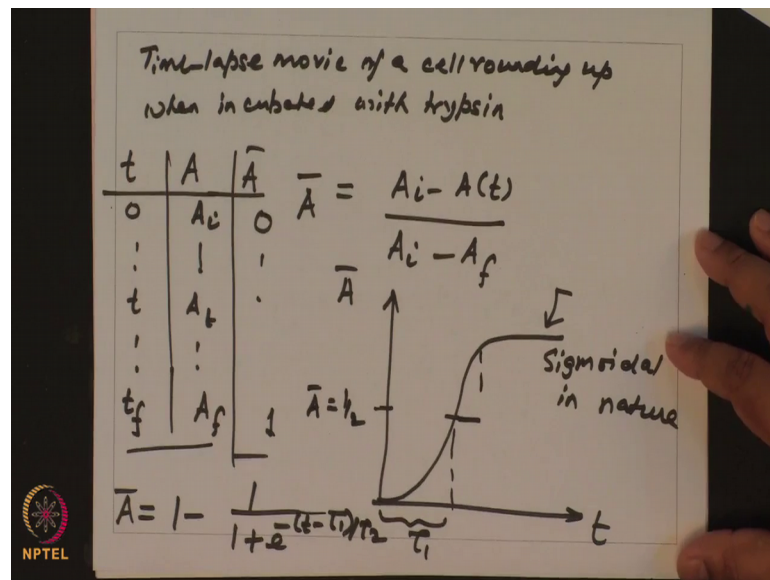 Time-lapse movie of a cell rounding up
when incubated with trypsin
t | A | A̅
0 | Ai | 0
A̅ = (Ai - A(t)) / (Ai - Af)
t | At
tf | Af | 1
A̅
A̅ = 1/2
Sigmoidal
in nature
τ1
t
A̅ = 1 - 1 / (1 + e^-(t-τ1)/τ2)
NPTEL